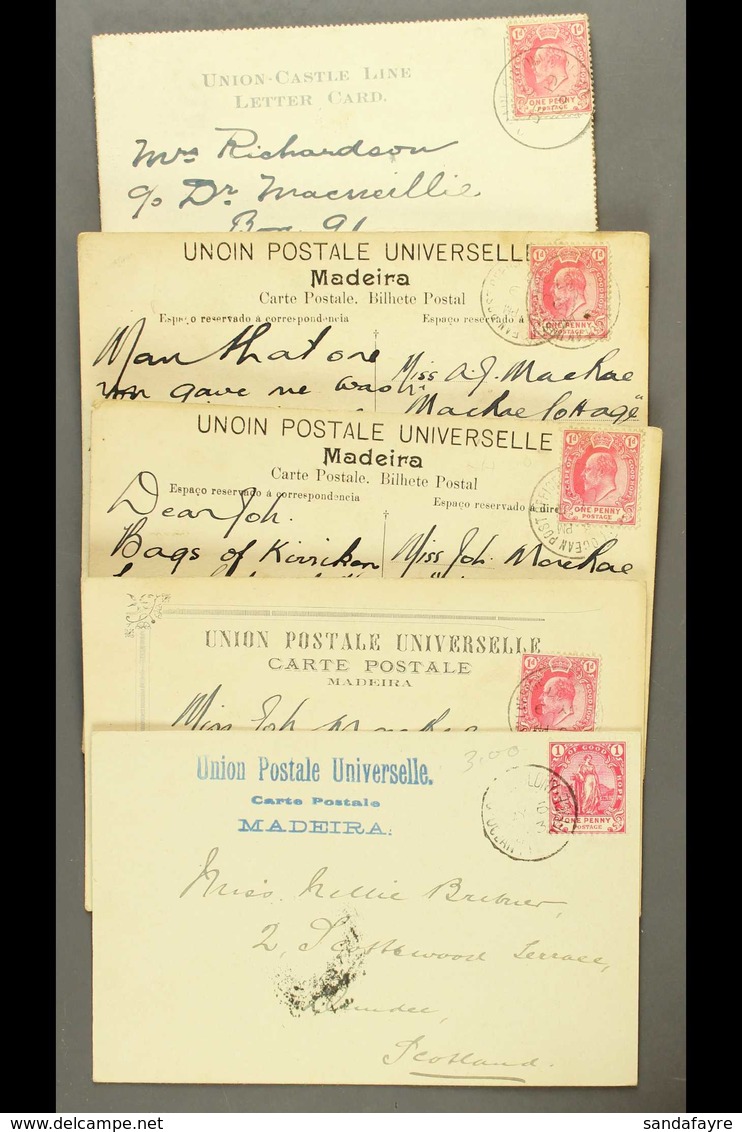 UNION-CASTLE LINE
LETTER CARD.
1d 1d
ONE PENNY
POSTAGE
Mrs Richardson
c/o Dr Macneillie
Box 91
UNOIN POSTALE UNIVERSELLE
Madeira
Carte Postale. Bilhete Postal
Espaço reservado á correspondencia
Espaço reservado á
1d 1d
ONE PENNY
POSTAGE
Man that one
gave me was
Miss A. J. MacRae
MacRae Cottage"
UNOIN POSTALE UNIVERSELLE
Madeira
Carte Postale. Bilhete Postal
Espaço reservado á correspondencia
Espaço reservado á dire
1d 1d
ONE PENNY
POSTAGE
OCEAN POST
Dear Joh.
Bags of
Miss Joh. MacRae
UNION POSTALE UNIVERSELLE
CARTE POSTALE
MADEIRA
1d 1d
Miss Joh MacRae
Union Postale Universelle.
Carte Postale
MADEIRA.
3.00
1 OF GOOD 1
HOPE
ONE PENNY
POSTAGE
Miss. Nellie Bribner,
2, Scottswood Terrace,
Dundee,
Scotland.
sandafayre